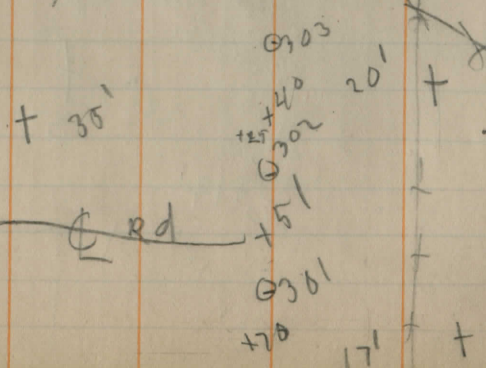 ⊙303
+40 20' +
+ 35'
+25
⊙302
℄ Rd +51
⊙301
+70 17' +